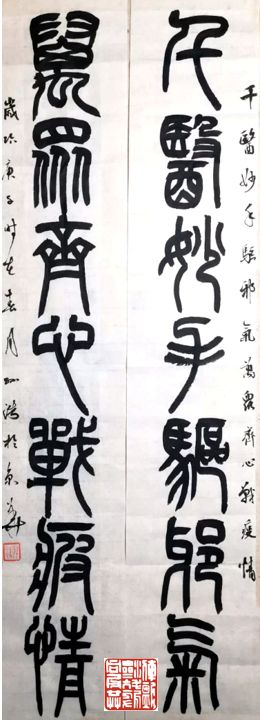 千醫妙手驅邪氣萬眾齊心戰疫情
千醫妙手驅邪氣
萬眾齊心戰疫情
歲次庚子時在春月